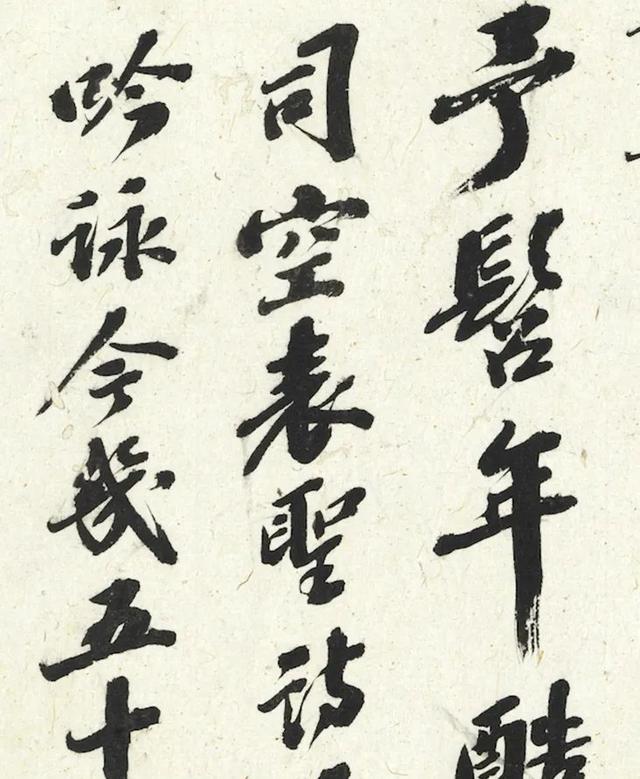 予髫年酷
司空表聖詩
吟詠今幾五十